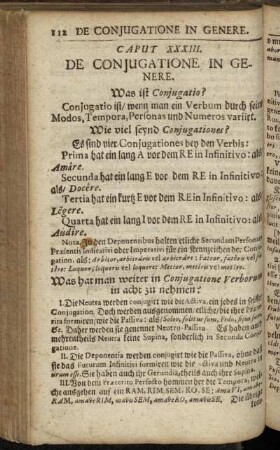 112 DE CONJUGATIONE IN GENERE.
CAPUT XXXIII.
DE CONJUGATIONE IN GE-
NERE.
Was ist Conjugatio?
Conjugatio ist / wenn man ein Verbum durch seine
Modos, Tempora, Personas und Numeros variirt.
Wie viel seynd Conjugationes?
Es sind vier Conjugationes bey den Verbis:
Prima hat ein lang A vor dem RE in Infinitivo: als
Amâre.
Secunda hat ein lang E vor dem RE in Infinitivo:
als / Docêre.
Tertia hat ein kurtz E vor dem RE in Infinitivo: als
Légere.
Quarta hat ein lang I vor dem RE in Infinitivo: als
Audire.
Nota. In den Deponentibus halten etliche Secundam Personam
Præsentis Indicativi oder Imperativi für ein Kennzeichen der Conju-
gation: als; arbitror, arbitrâris vel arbitrâre:
Loquor, loqueris vel loquere: Metior, metîris vel metire.
Was hat man weiter in Conjugatione Verborum
in acht zu nehmen?
I. Die Neutra werden conjugirt wie die Activa, ein jedes in seiner
Conjugation. Doch werden ausgenommen / etliche /
als / Soleo, solitus sum, Fido, fisus sum
&c. Daher werden sie genennet Neutro-Passiva. Es haben auch
mehrentheils Neutra keine Supina, sonderlich in Secunda Conju-
gatione.
II. Die Deponentia werden conjugirt wie die Passiva, ohne
das Futurum Infinitivi formiren wie die Activa
urum esse. Sie haben auch ihr Gerundia, theils auch ihre Supina.
III. Von dem Præterito Perfecto kommen her die Tempora,
che ausgehen auf ein RAM. RIM. SEM. RO. SE; AmaVI, ama-
RAM, amaveRIM, amavisSEM, amaveRO, amavisSE. Die übrige